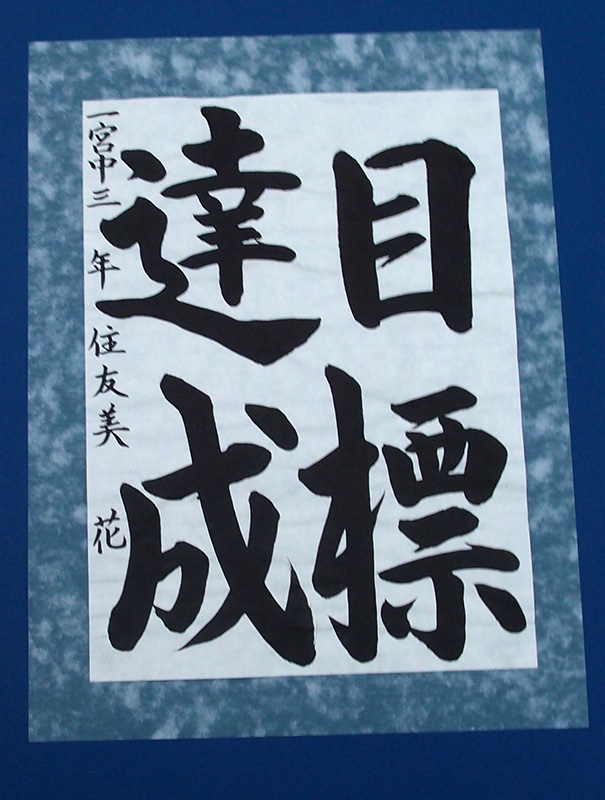 目標
達成
一宮中三年 住友美花